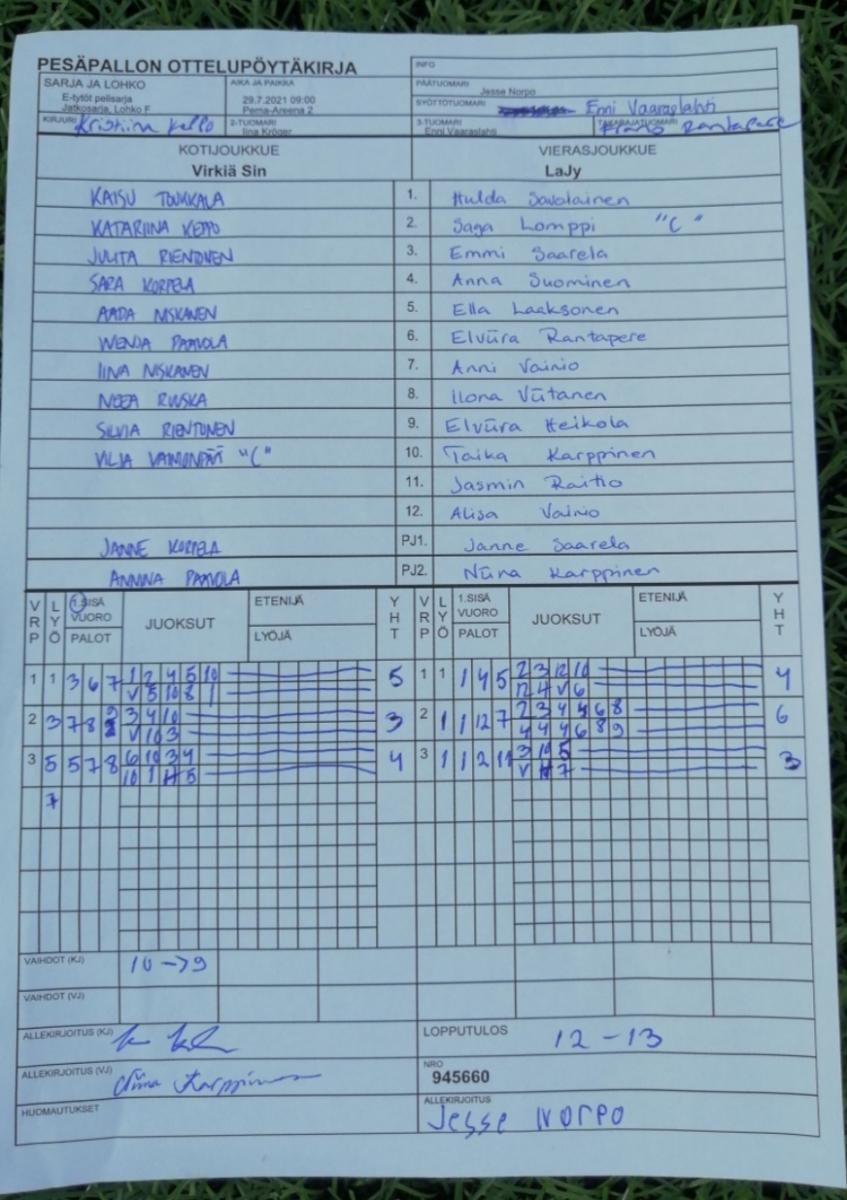 PESÄPALLON OTTELUPÖYTÄKIRJA
INFO
SARJA JA LOHKO
E-tytöt pelisarja
Jatkosarja, Lohko F
AIKA JA PAIKKA
29.7.2021 09:00
Pema-Areena 2
PÄÄTUOMARI
Jesse Norpo
SYÖTTÖTUOMARI Enni Vaaraslahti
KIRJURI Kristiina Keppo
2-TUOMARI
Iina Kröger
3-TUOMARI
Enni Vaaraslahti
TAKARAJATUOMARI Rantapere
KOTIJOUKKUE
Virkiä Sin
VIERASJOUKKUE
LaJy
KAISU TOUKKALA 1. Hulda Savolainen
KATARIINA KEPPO 2. Saga Lomppi "C"
JULITA RIENTONEN 3. Emmi Saarela
SARA KORPELA 4. Anna Suominen
AADA NISKANEN 5. Ella Laaksonen
WENDA PAAVOLA 6. Elviira Rantapere
IINA NISKANEN 7. Anni Vainio
NEEA RUUSKA 8. Ilona Viitanen
SILVIA RIENTONEN 9. Elviira Heikola
VILJA VAINIONPÄÄ "C" 10. Taika Karppinen
11. Jasmin Raitio
12. Alisa Vainio
JANNE KORPELA PJ1. Janne Saarela
ANNINA PAAVOLA PJ2. Niina Karppinen
VRP LYÖ 1.SISÄ VUORO PALOT JUOKSUT ETENIJÄ LYÖJÄ YHT VRP LYÖ 1.SISÄ VUORO PALOT JUOKSUT ETENIJÄ LYÖJÄ YHT
1 1 3 6 7 1 2 4 5 10 5 1 1 1 4 5 2 3 12 10 4
V 5 10 8 1 12 4 V 6
2 3 7 8 2 3 4 10 3 2 1 1 12 7 2 3 4 4 6 8 6
V 10 3 4 4 4 6 8 9
3 5 5 7 8 6 10 3 4 4 3 1 1 2 11 3 10 5 3
10 1 H 5 V H 7
7
VAIHDOT (KJ) 10 → 9
VAIHDOT (VJ)
ALLEKIRJOITUS (KJ)
LOPPUTULOS 12 - 13
ALLEKIRJOITUS (VJ) Niina Karppinen
NRO
945660
HUOMAUTUKSET
ALLEKIRJOITUS
Jesse Norpo